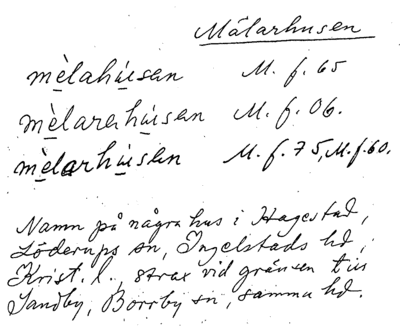 Mälarhusen
mèlahúsan M. f. 65
mèlarahúsan M. f. 06.
mèlarhúsan M. f. 75, M. f. 60.
Namn på några hus i Hagestad,
Löderups sn, Ingelstads hd,
Krist. l., strax vid gränsen till
Sandby, Borrby sn, samma hd.